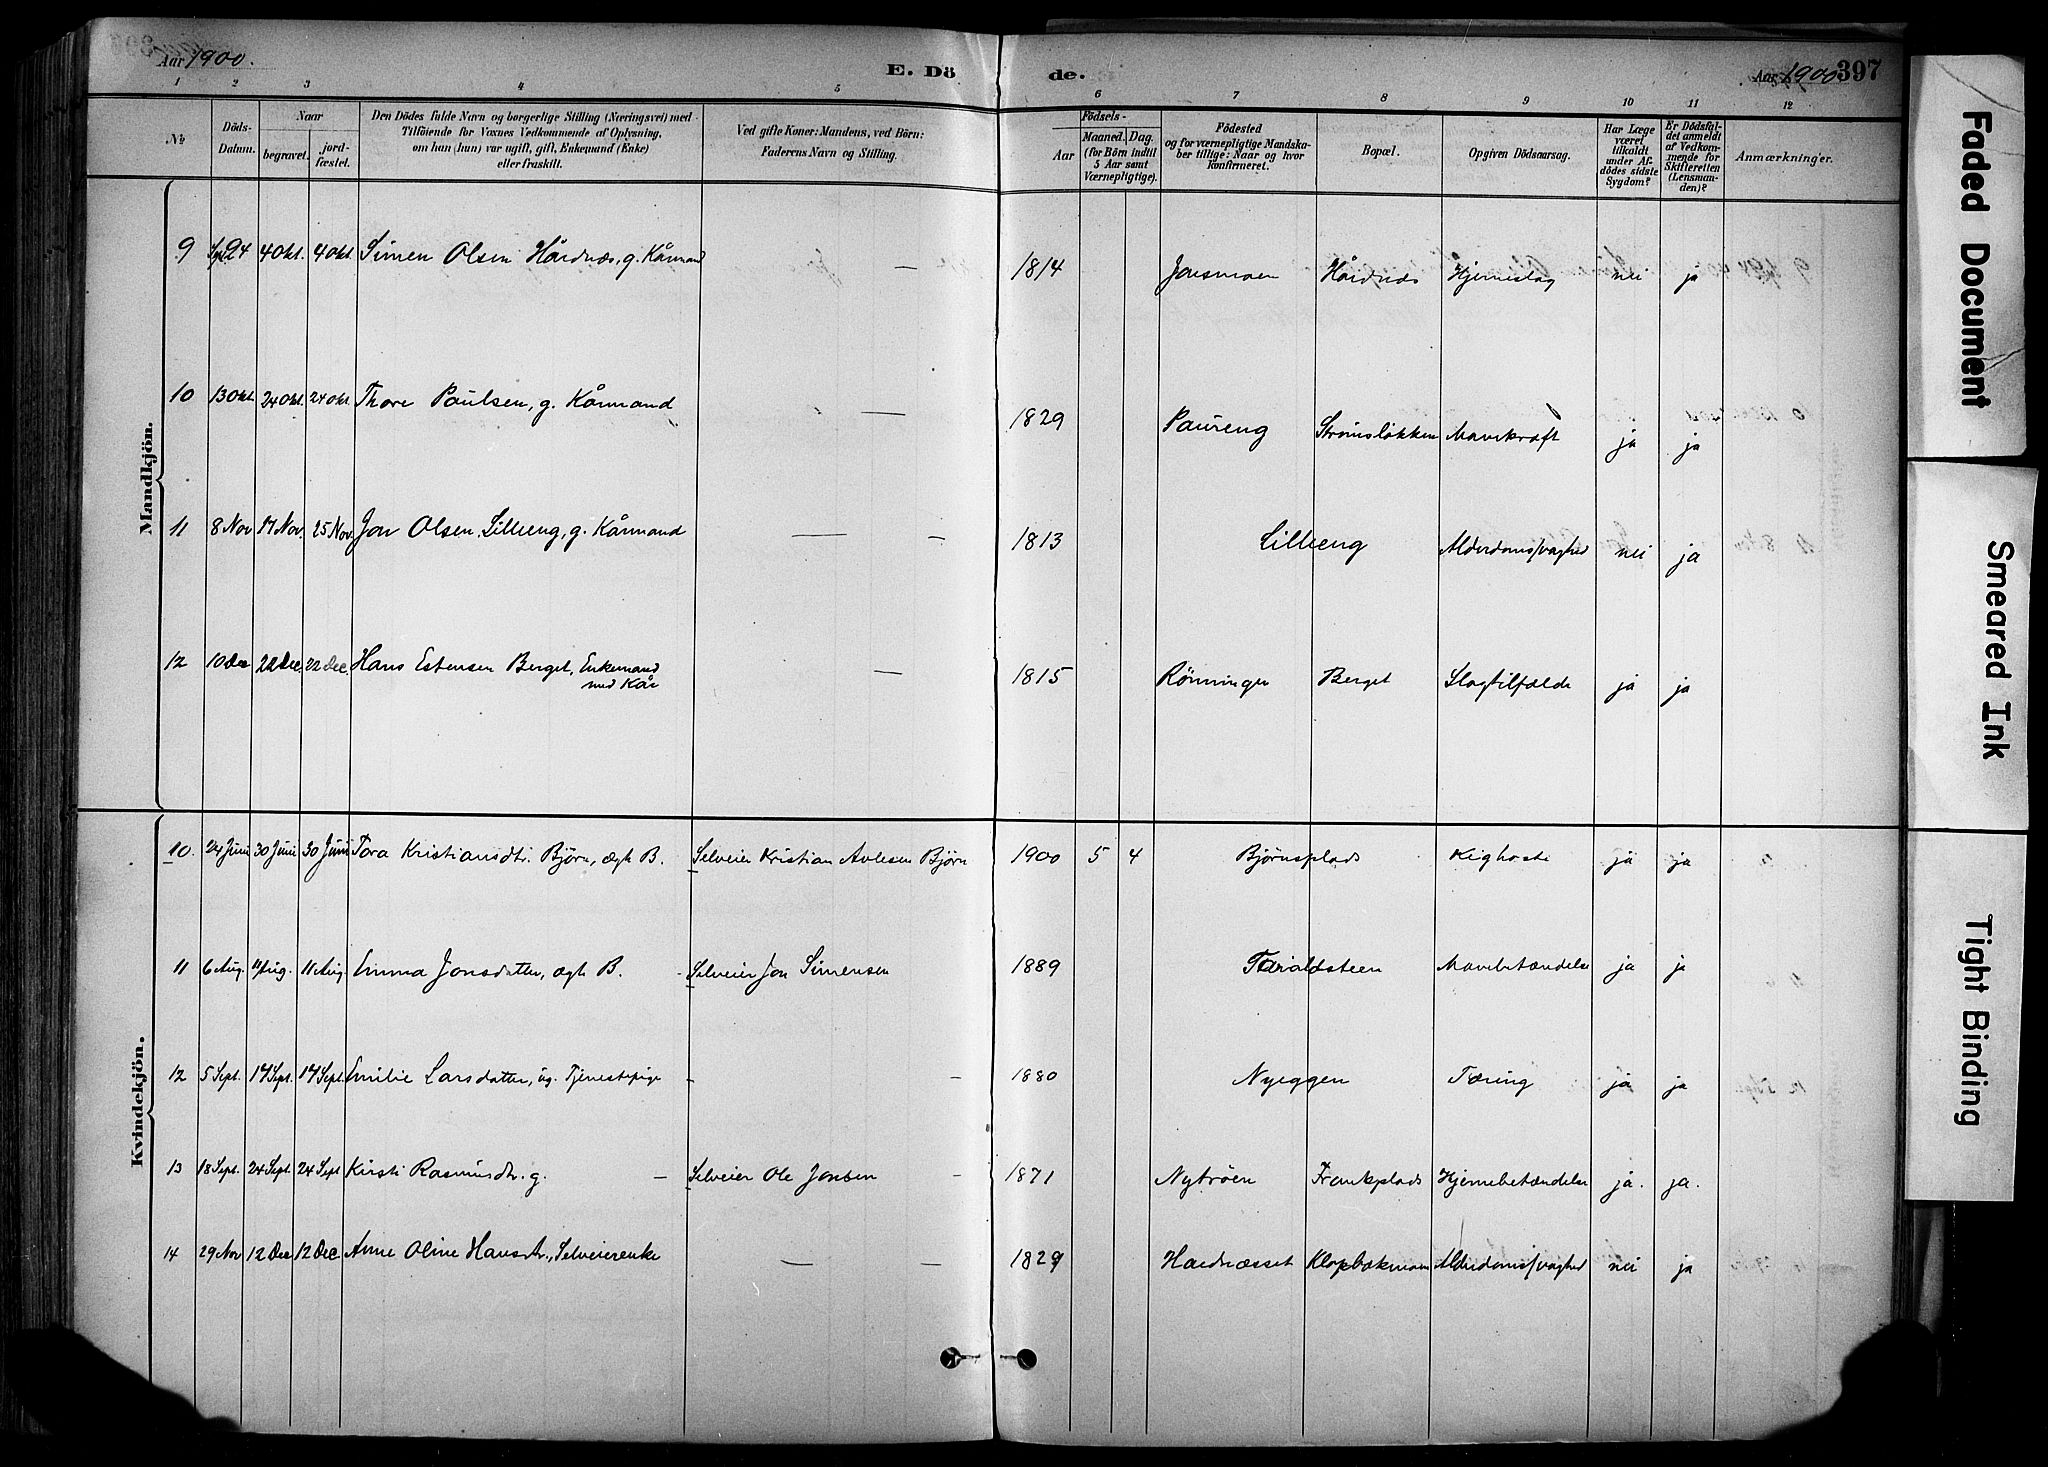 Aar 1900.
E. Dö
de.
Aar 1900
397
1 2 3 4 5 6 7 8 9 10 11 12
№
Döds-Datum.
Naar
begravet.
jord-fæstet.
Den Dödes fulde Navn og borgerlige Stilling (Næringsvei) med
Tilföiende for Voxnes Vedkommende af Oplysning,
om han (hun) var ugift, gift, Enkemand (Enke)
eller fraskilt.
Ved gifte Koner: Mandens, ved Börn:
Faderens Navn og Stilling.
Födsels-
Aar
Maaned. Dag.
(for Börn indtil
5 Aar samt
Værnepligtige).
Födested
og for værnepligtige Mandska-
ber tillige: Naar og hvor
konfirmeret.
Bopæl.
Opgiven Dödsaarsag.
Har Læge
været
tilkaldt
under Af-
dödes sidste
Sygdom?
Er Dödsfal-
det anmeldt
af Vedkom-
mende for
Skifteretten
(Lensman-
den)?
Anmærkninger.
Mandkjön.
9 Spt 24 4 Okt. 4 Okt. Simen Olsen Hårdnæs, g. Kårmand — 1814 Jonsmoen Hårdnæs Hjerneslag nei ja
10 13 Okt. 24 Okt. 24 Okt. Thore Paulsen, g. Kårmand — 1829 Paureng Strömsløkken Mavekræft ja ja
11 8 Nov 17 Nov. 25 Nov. Jon Olsen Lilleeng, g. Kårmand — - 1813 Lilleeng Alderdomssvaghed nei ja
12 10 Dec 22 Dec. 22 Dec. Hans Estensen Berget, Enkemand — 1815 Rönningen Berget Slagtilfælde ja ja
med Kår
Kvindekjön.
10. 24 Juni 30 Juni 30 Juni Tora Kristiansdtr. Björn, ægte B. Selveier Kristian Avlesen Björn 1900 5 4 Björnsplads Kighoste ja ja
11 6 Aug. 11 Aug. 11 Aug. Emma Jonsdatter, ægte B. - Selveier Jon Simensen 1889 Taraldsteen Mavebetændelse ja ja
12 5 Sept. 17 Sept. 17 Sept. Emilie Larsdatter, ug. Tjenestepige - - 1880 Nyeggen Tæring ja ja
13 18 Sept. 24 Sept. 24 Sept Kirsti Rasmusdtr. g. — Selveier Ole Jonsen - 1871 Nytröen Frankplads Hjernebetændelse ja. ja.
14 29 Nov 12 Dec 12 Dec. Anne Oline Hansdtr., Selveierenke — - 1829 Haardnæsset Klopbakmoen Alderdomssvaghed nei ja
Faded Document
Smeared Ink
Tight Binding